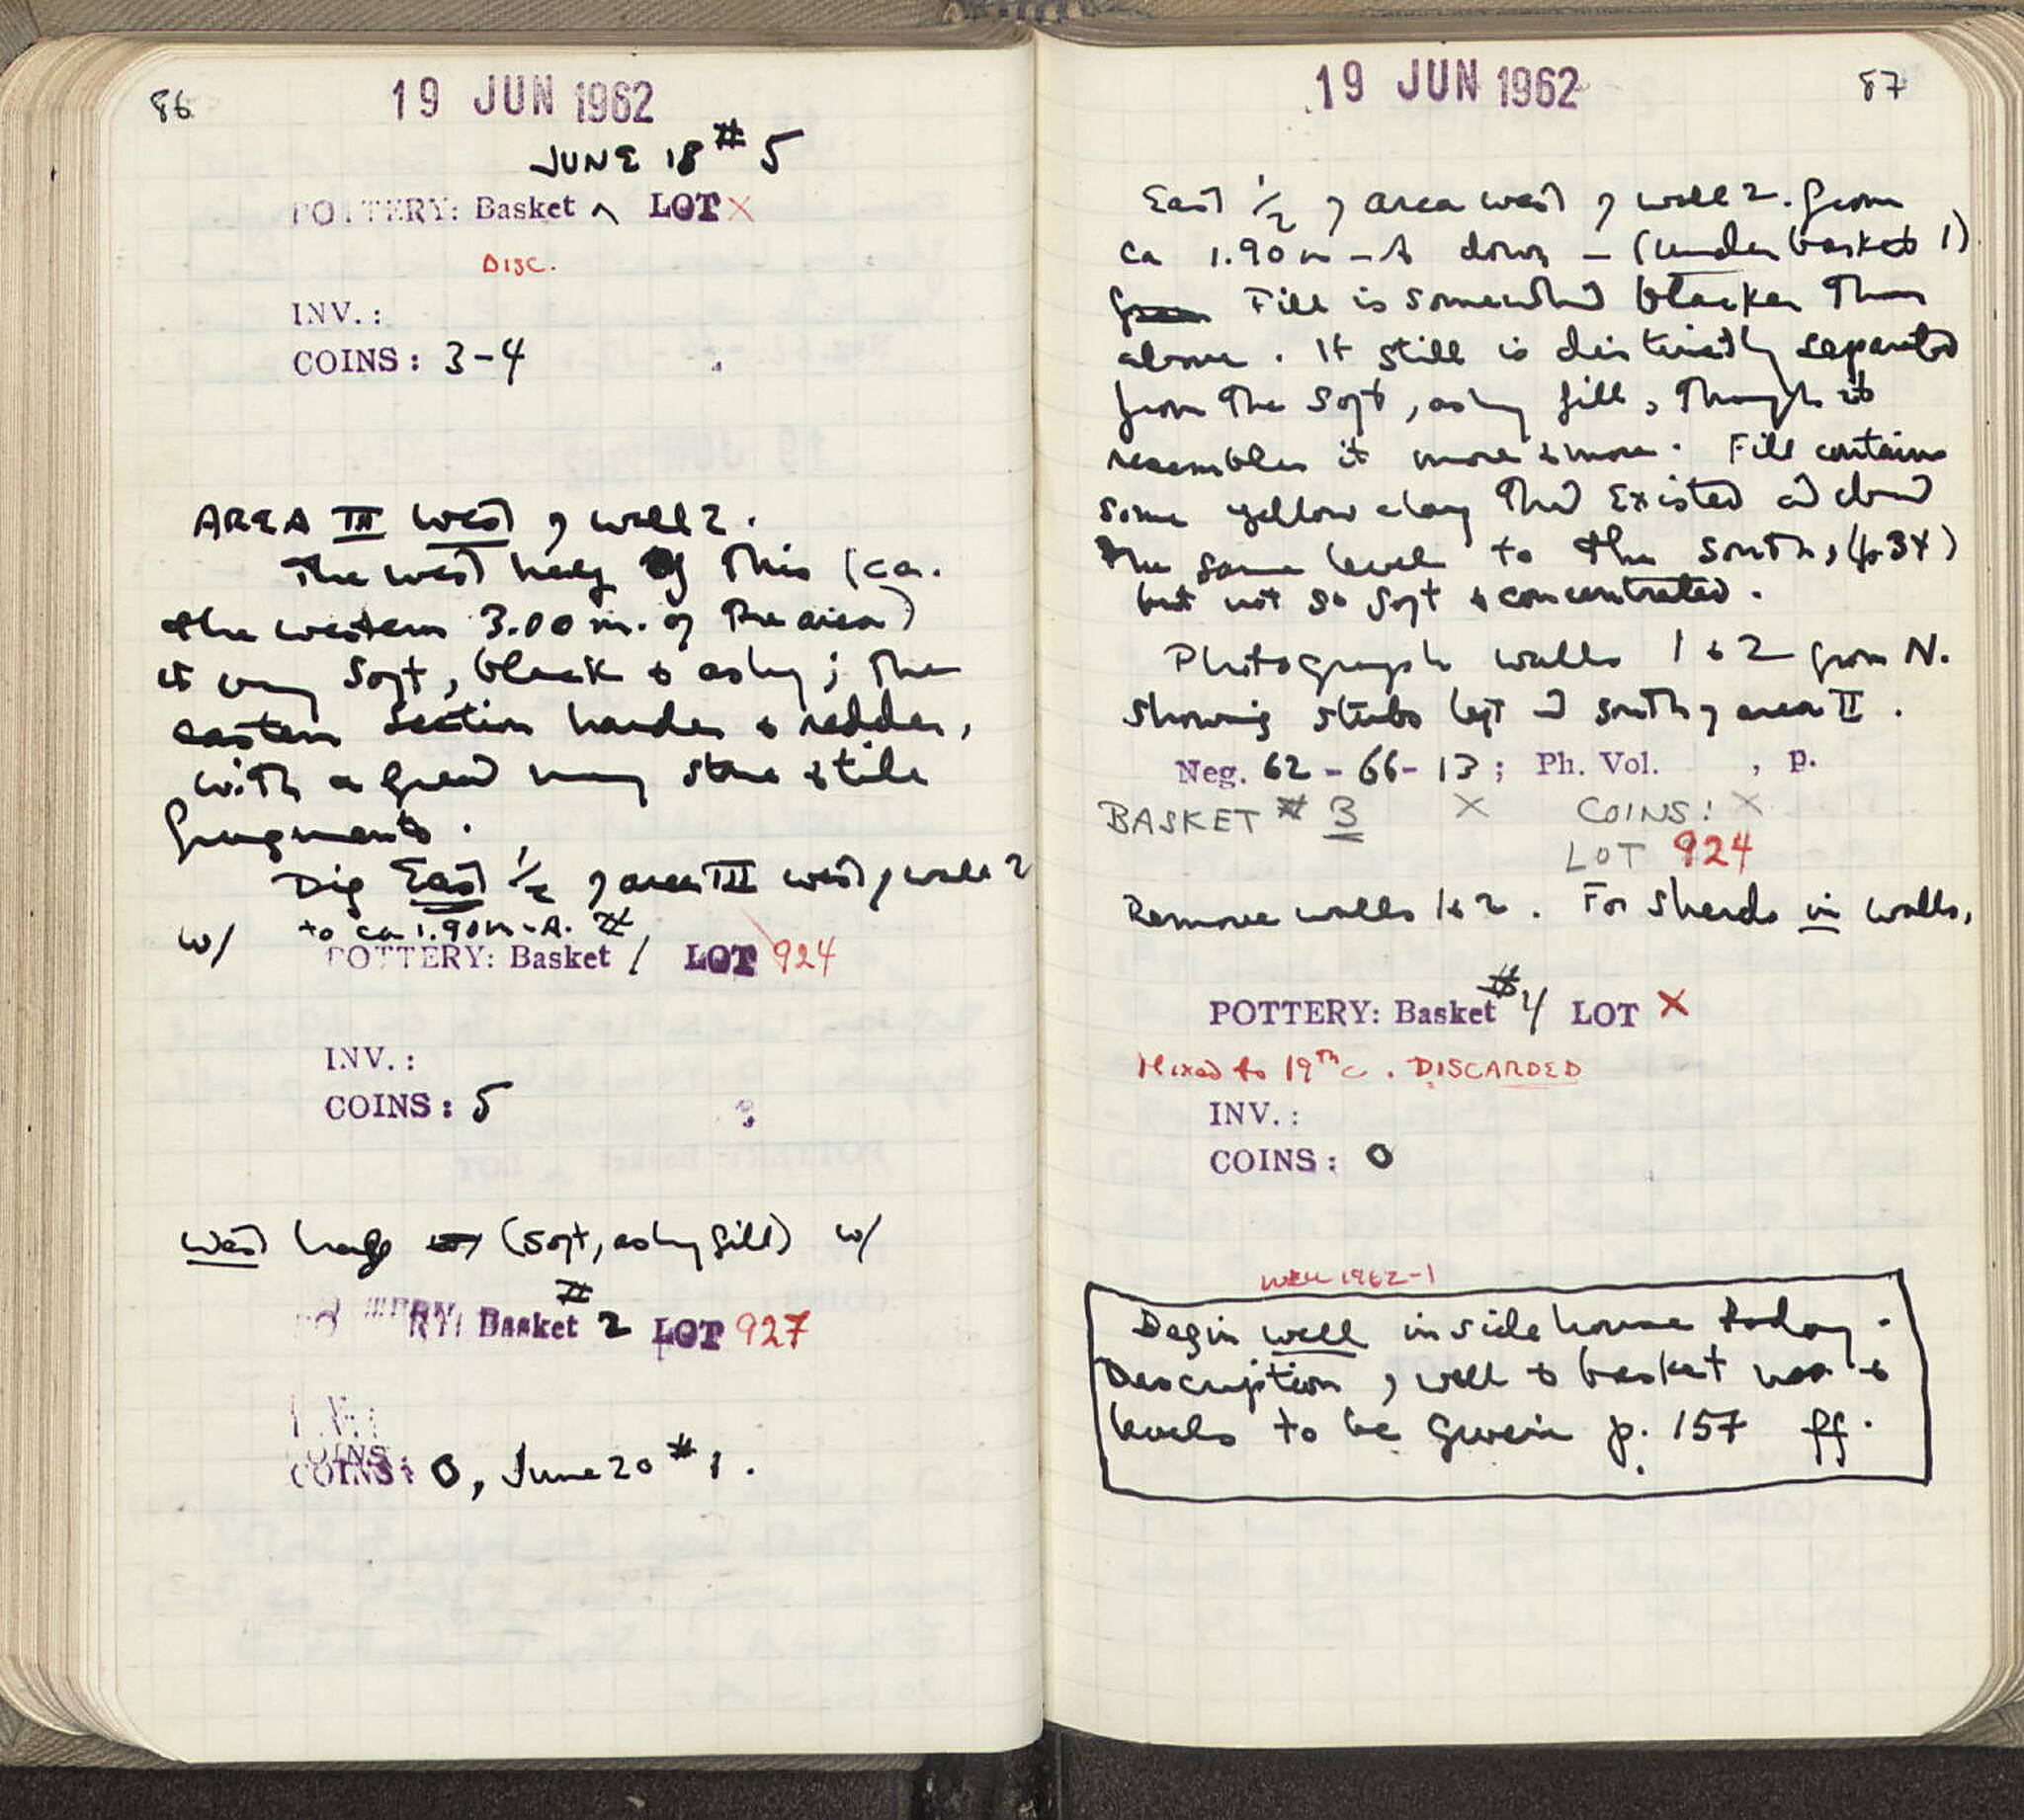 86
19 JUN 1962
JUNE 18 # 5
POTTERY: Basket ^ LOT X
DISC.
INV.:
COINS: 3-4
AREA III West of wall 2.
The west half of this (ca.
the western 3.00 m. of the area)
is very soft, black & ashy; the
eastern section harder & redder,
with a great many stone & tile
fragments.
Dig East 1/2 of area III west of wall 2
to ca 1.90m-A. #
w/ POTTERY: Basket 1 LOT 924
INV.:
COINS: 5
West half (soft, ashy fill) w/
#
POTTERY: Basket 2 LOT 927
INV.:
COINS: 0, June 20 # 1.
87
19 JUN 1962
East 1/2 of area west of wall 2. From
ca 1.90m-A down - (under basket 1)
Fill is somewhat blacker than
above. It still is distinctly separated
from the soft, ashy fill, though it
resembles it more & more. Fill contains
some yellow clay that existed at about
the same level to the south, (p. 34)
but not so soft & concentrated.
Photograph walls 1 & 2 from N.
showing stubs left at south of area II.
Neg. 62-66-13; Ph. Vol. , p.
BASKET # 3 X COINS: X
LOT 924
Remove walls 1 & 2. For sherds in walls,
POTTERY: Basket #4 LOT X
Mixed to 19th c. DISCARDED
INV.:
COINS: 0
Well 1962-1
Begin well inside house today.
Description of well & basket nos &
levels to be given p. 157 ff.